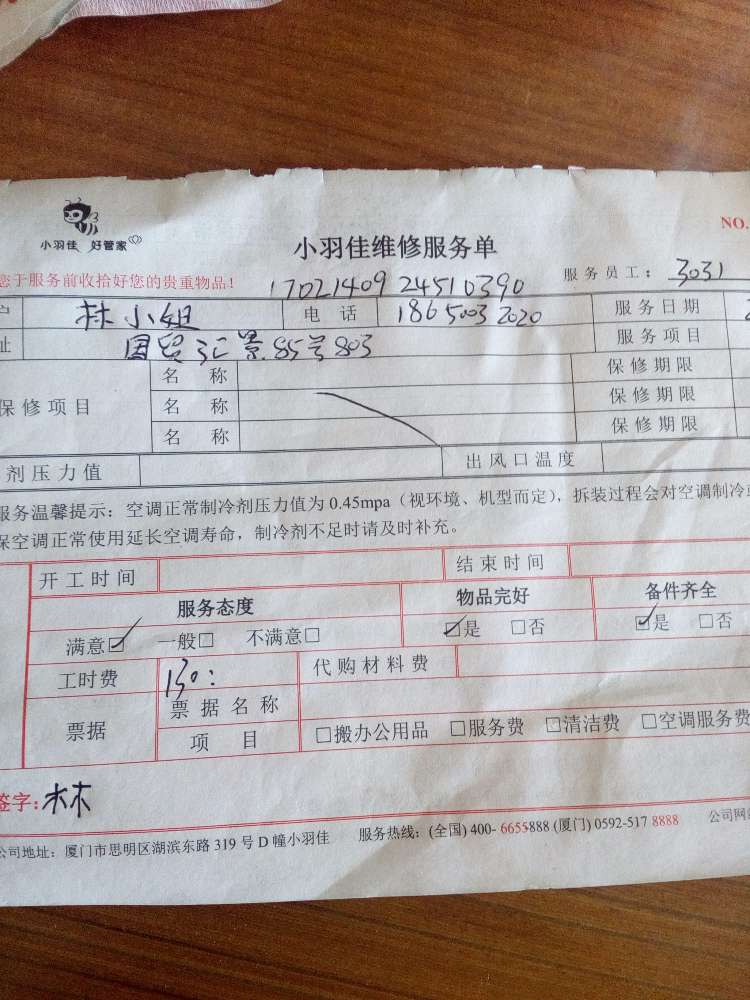 小羽佳 好管家
小羽佳维修服务单
NO.
您于服务前收拾好您的贵重物品!
1702140924510390
服务员工: 3031
户 林小姐 电话 18650032020 服务日期
址 国贸汇景.85号803 服务项目
保修项目 名称 保修期限
名称 保修期限
名称 保修期限
剂压力值 出风口温度
服务温馨提示：空调正常制冷剂压力值为0.45mpa（视环境、机型而定），拆装过程会对空调制冷
保空调正常使用延长空调寿命，制冷剂不足时请及时补充。
开工时间 结束时间
服务态度 物品完好 备件齐全
满意☑ 一般□ 不满意□ ☑是 □否 ☑是 □否
工时费 130: 代购材料费
票据 票据名称
项目 □搬办公用品 □服务费 □清洁费 □空调服务费
签字: 林
公司地址：厦门市思明区湖滨东路319号D幢小羽佳 服务热线：(全国) 400-6655888 (厦门) 0592-517 8888 公司网